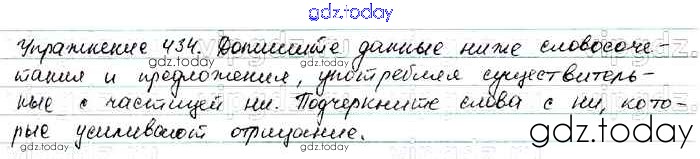 gdz.today
Упражнение 434. Допишите данные ниже словосоче-
тания и предложения, употребляя существитель-
ные с частицей ни. Подчеркните слова с ни, кото-
рые усиливают отрицание.
gdz.today